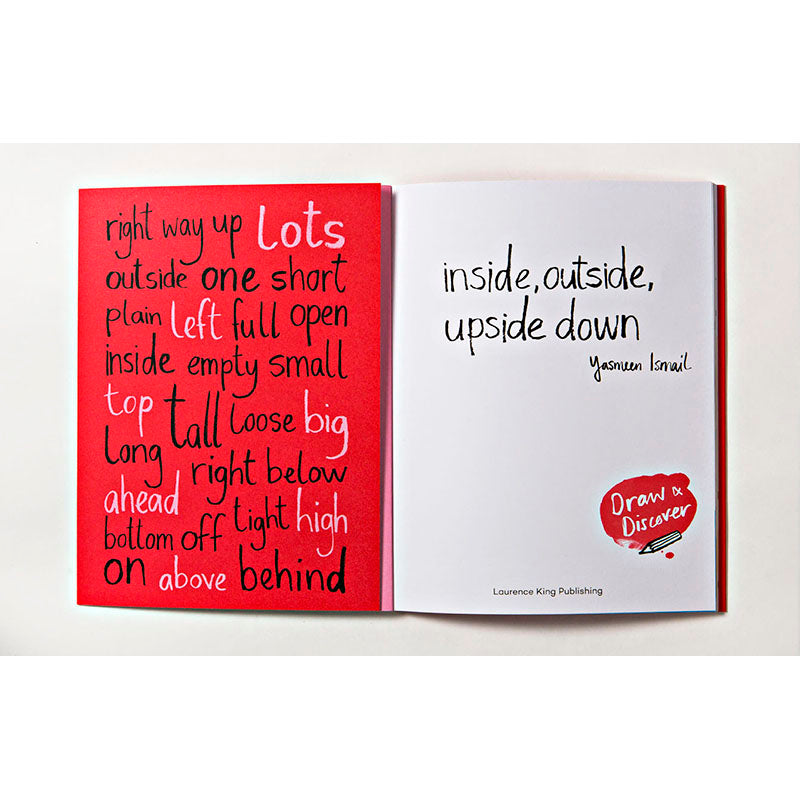 right way up lots
outside one short
plain left full open
inside empty small
top tall loose big
long right below
ahead tight high
bottom off
on above behind
inside, outside,
upside down
Yasmeen Ismail
Draw &
Discover
Laurence King Publishing